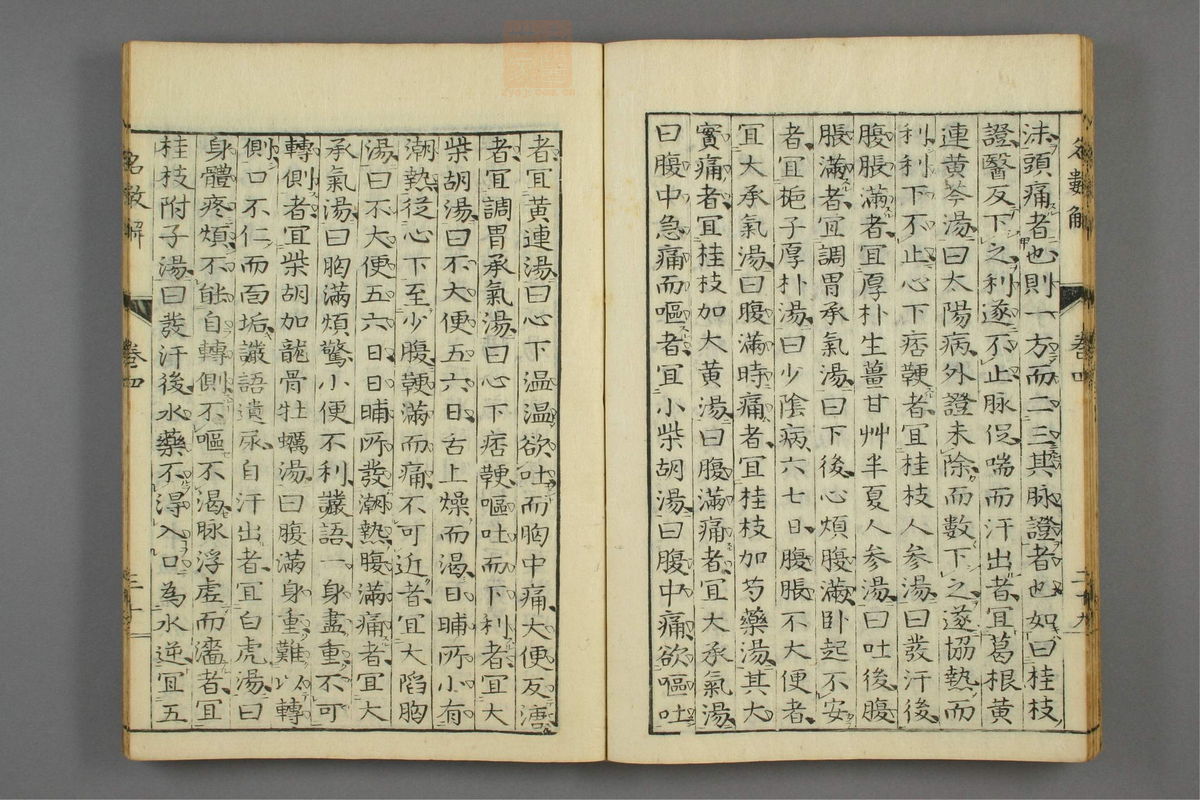 名數解 卷四 二十九
沫頭痛者也則一方而二三其脉證者也如曰桂枝
證醫反下之利遂不止脉促喘而汗出者宜葛根黄
連黄芩湯曰太陽病外證未除而數下之遂協熱而
利利下不止心下痞鞕者宜桂枝人参湯曰發汗後
腹脹滿者宜厚朴生薑甘艸半夏人参湯曰吐後腹
脹滿者宜調胃承氣湯曰下後心煩腹滿卧起不安
者宜梔子厚朴湯曰少陰病六七日腹脹不大便者
宜大承氣湯曰腹滿時痛者宜桂枝加芍藥湯其大
實痛者宜桂枝加大黄湯曰腹滿痛者宜大承氣湯
曰腹中急痛而嘔者宜小柴胡湯曰腹中痛欲嘔吐
者宜黄連湯曰心下温温欲吐而胸中痛大便反溏
者宜調胃承氣湯曰心下痞鞕嘔吐而下利者宜大
柴胡湯曰不大便五六日舌上燥而渴日晡所小有
潮熱從心下至少腹鞕滿而痛不可近者宜大陷胸
湯曰不大便五六日日晡所發潮熱腹滿痛者宜大
承氣湯曰胸滿煩驚小便不利讝語一身盡重不可
轉側者宜柴胡加龍骨牡蠣湯曰腹滿身重難以轉
側口不仁而面垢讝語遺尿自汗出者宜白虎湯曰
身體疼煩不能自轉側不嘔不渴脉浮虛而濇者宜
桂枝附子湯曰發汗後水藥不得入口為水逆宜五
名數解 卷四